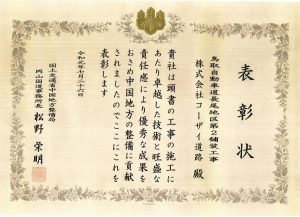 表彰状
鳥取自動車道長尾地区第2舗装工事
株式会社コーザイ道路 殿
貴社は頭書の工事の施工に
あたり卓越した技術と旺盛な
責任感により優秀な成果を
おさめ中国地方の整備に貢献
されましたのでここにこれを
表彰します
令和元年七月二十六日
国土交通省中国地方整備局
岡山国道事務所長 松野 栄明